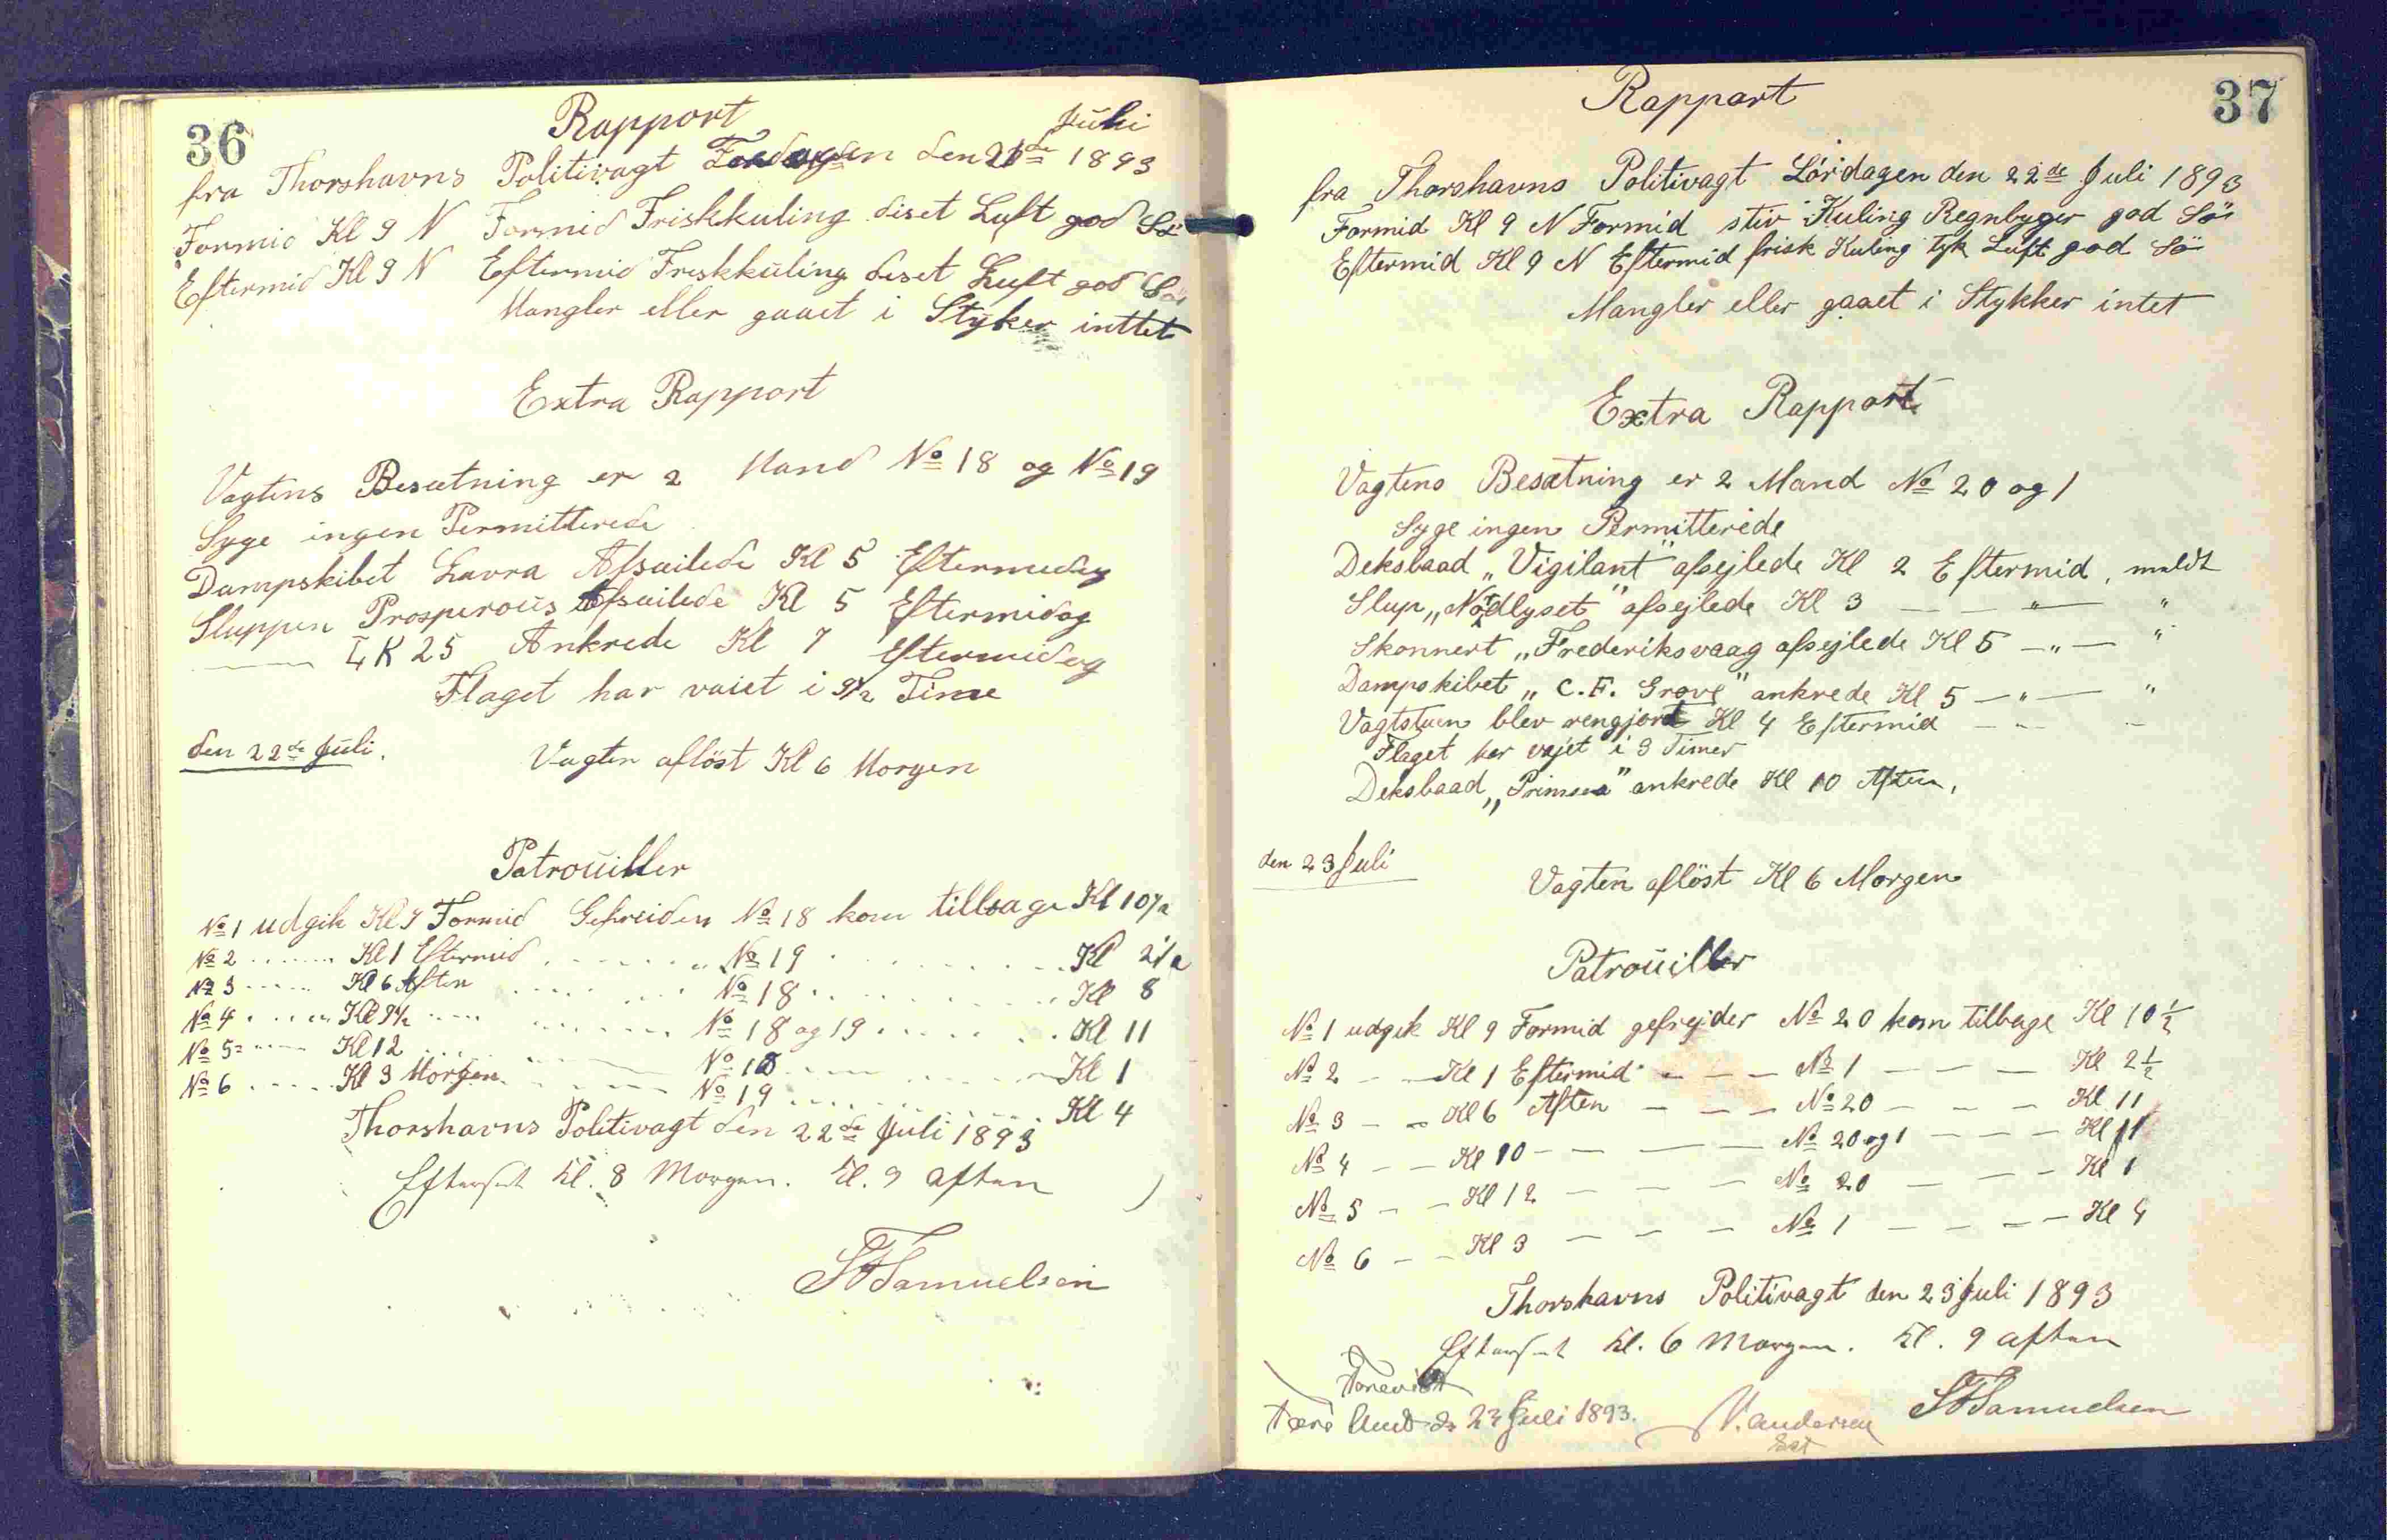 36
Rapport
fra Thorshavns Politivagt Fredagen den 21de Juli 1893
Formid Kl 9 N Formid Friskkuling diset Luft god Sö
Eftermid Kl 9 N Eftermid Friskkuling diset Luft god Sö
Mangler eller gaaet i Styker inttet
Extra Rapport
Vagtens Besætning er 2 Mand No 18 og No 19
Syge ingen Permitterede
Dampskibet Laura Afsailede Kl 5 Eftermidag
Sluppen Prosperous Afsailede Kl 5 Eftermidag
— LK 25 Ankrede Kl 7 Eftermidag
Flaget har vaiet i Time
den 22de Juli. Vagten aflöst Kl 6 Morgen
Patrouiller
No 1 udgik Kl 9 Formid Gefreiden No 18 kom tilbage Kl 10½
No 2 ...... Kl 1 Eftermid ...... No 19 ...... Kl 2½
No 3 ...... Kl 6 Aften ...... No 18 ...... Kl 8
No 4 ...... Kl 9½ ...... No 18 og 19 ...... Kl 11
No 5 ...... Kl 12 ...... No 18 ...... Kl 1
No 6 ...... Kl 3 Morgen ...... No 19 ...... Kl 4
Thorshavns Politivagt den 22de Juli 1893
Efterset Kl. 8 Morgen. Kl. 9 aften
Samuelsen
37
Rapport
fra Thorshavns Politivagt Lördagen den 22de Juli 1893
Formid Kl 9 N Formid stiv Kuling Regnbyger god Sö
Eftermid Kl 9 N Eftermid frisk Kuling tyk Luft god Sö
Mangler eller gaaet i Stykker intet
Extra Rapport
Vagtens Besætning er 2 Mand No 20 og 1
Syge ingen Permitterede
Deksbaad „Vigilant" afsejlede Kl 2 Eftermid, meldt
Slup „Nordlyset" afsejlede Kl 3 — — " — "
Skonnert „Frederiksvaag afsejlede Kl 5 — " — "
Dampskibet „C. F. Grove" ankrede Kl 5 — " — "
Vagtstuen blev rengjort Kl 4 Eftermid — —
Flaget har vejet i 3 Timer
Deksbaad „ " ankrede Kl 10 Aften,
den 23 Juli
Vagten aflöst Kl 6 Morgen
Patrouiller
No 1 udgik Kl 9 Formid gefrejder No 20 kom tilbage Kl 10½
No 2 — — Kl 1 Eftermid — — — No 1 — — — Kl 2½
No 3 — — Kl 6 Aften — — — No 20 — — — Kl 11
No 4 — — Kl 10 — — — No 20 og 1 — — — Kl 11
No 5 — — Kl 12 — — — No 20 — — — Kl 1
No 6 — — Kl 3 — — — No 1 — — — Kl 4
Thorshavns Politivagt den 23 Juli 1893
Efterset Kl. 6 Morgen. Kl. 9 aften
Forevist
Færø Amt d. Juli 1893. Andersen
Samuelsen